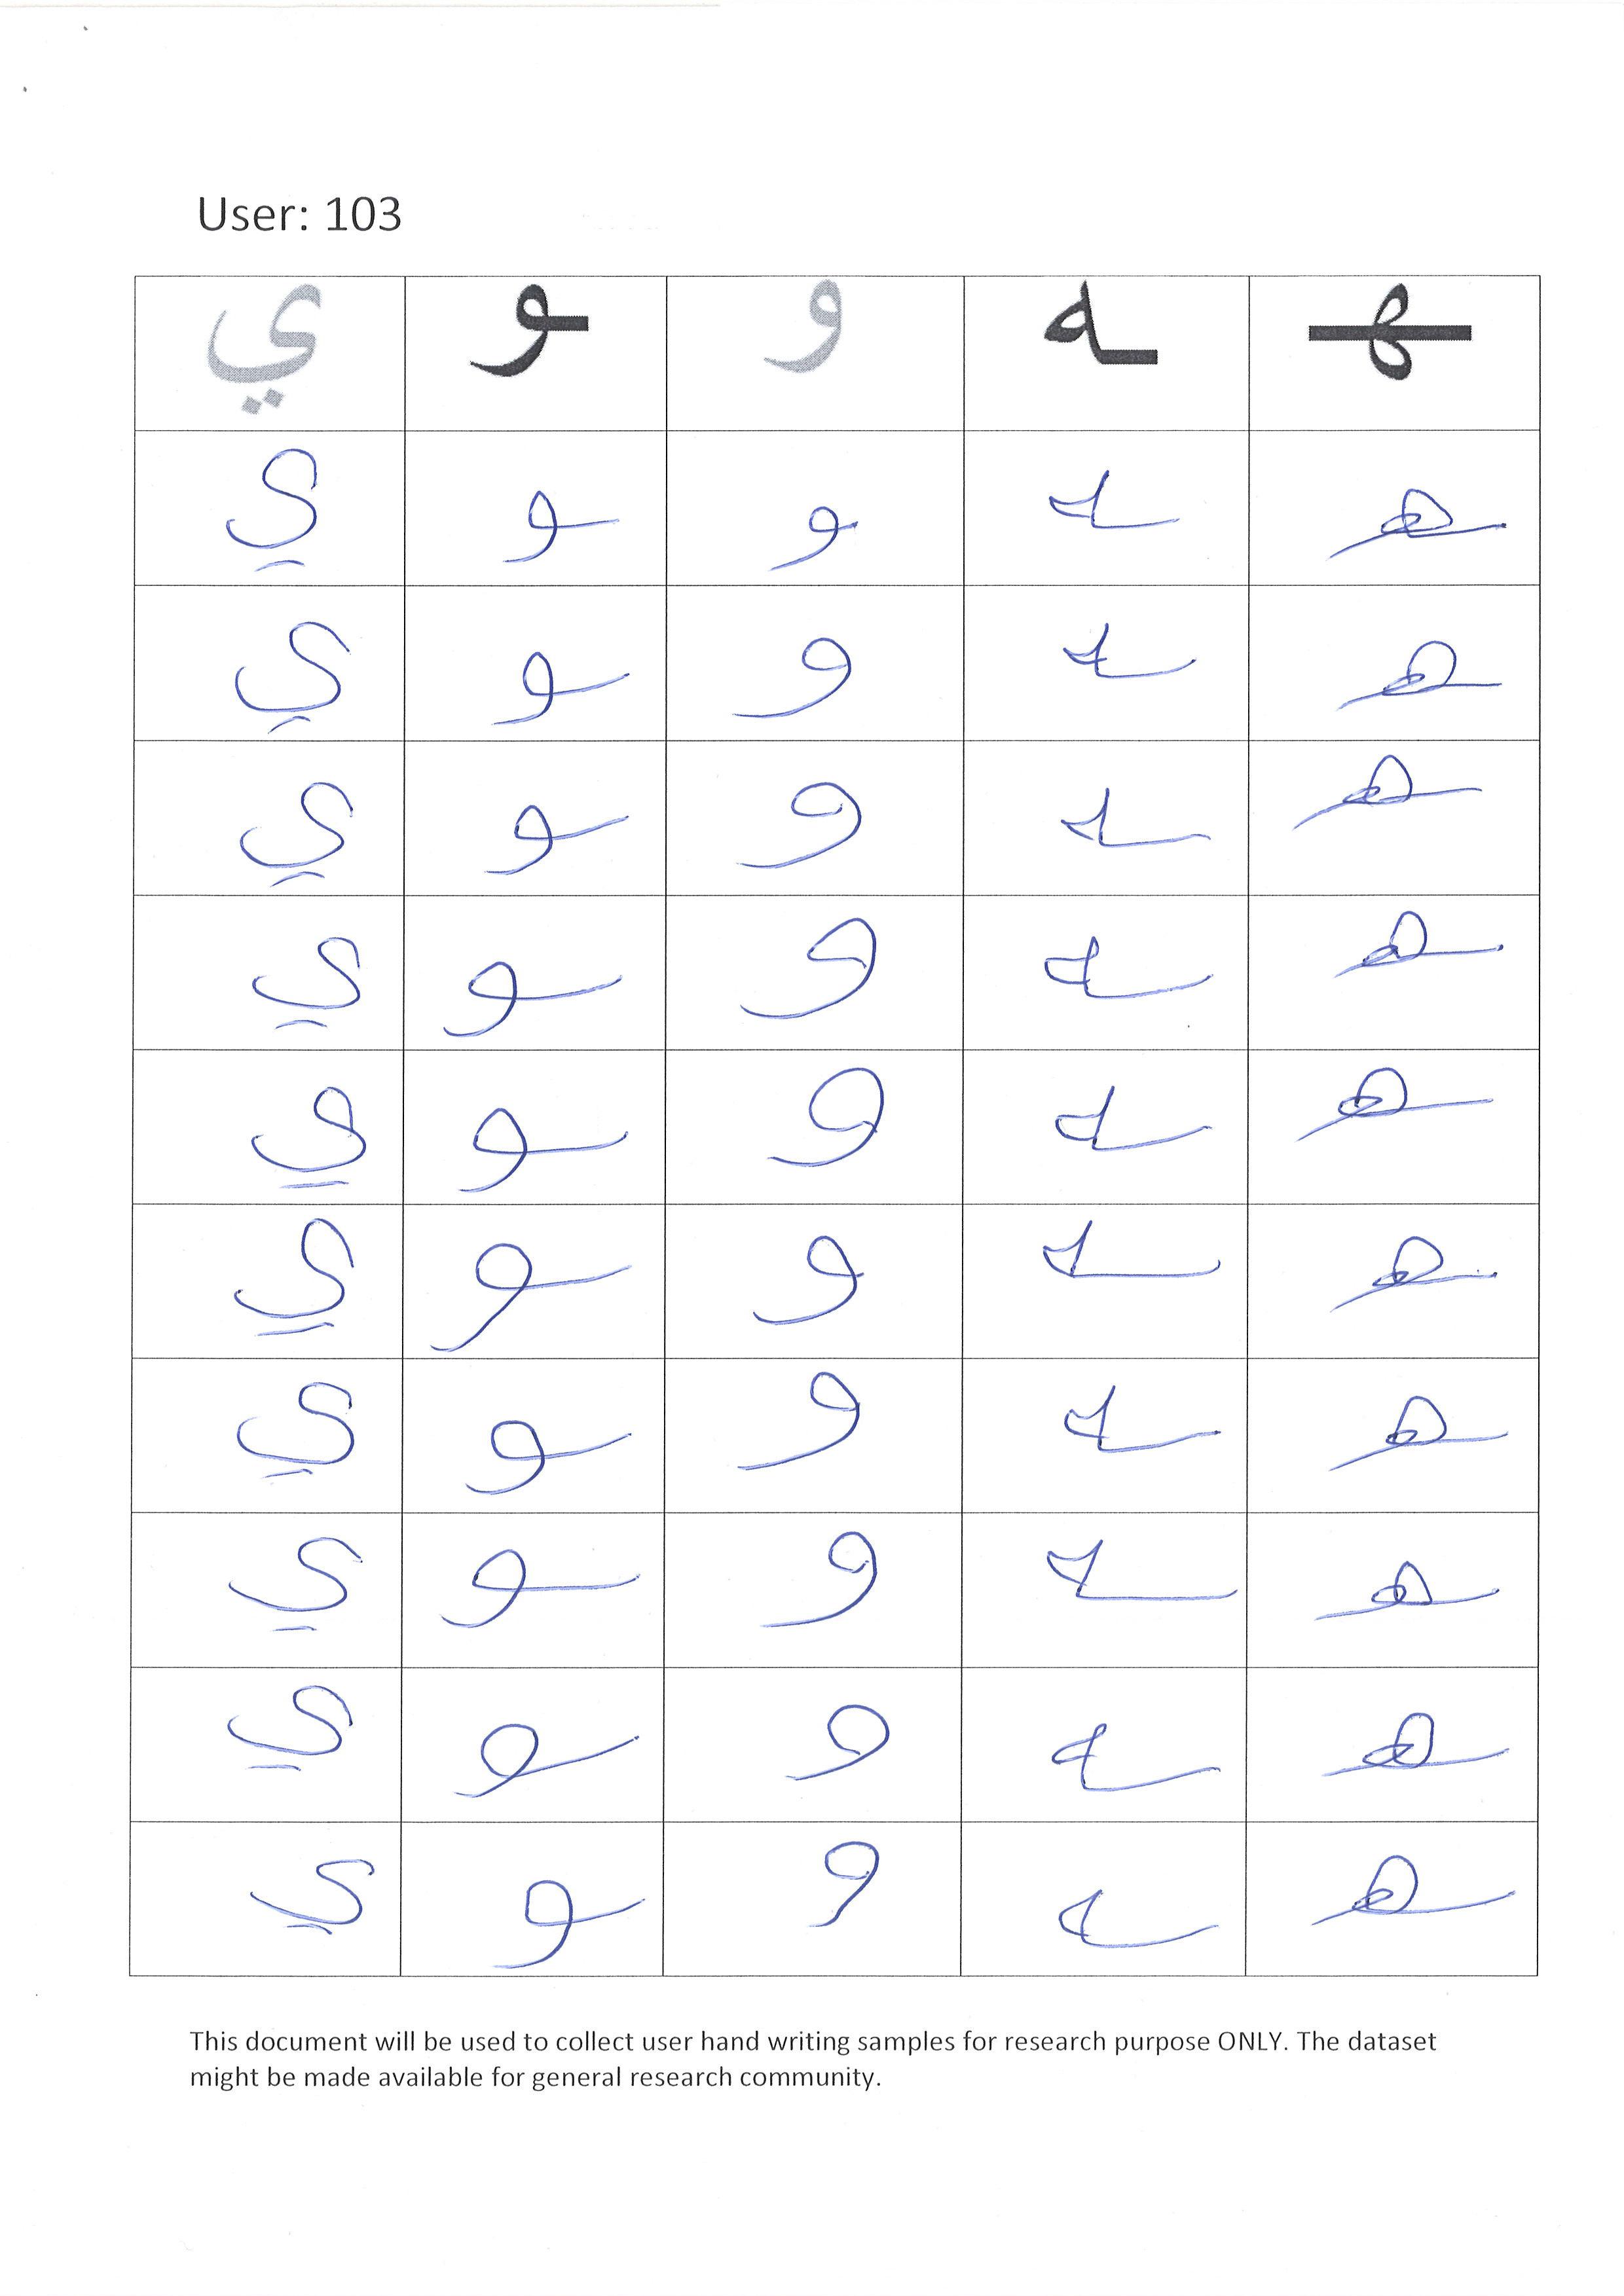 User: 103
ي ـو و ـه ـهـ
ي ـو و ـه ـهـ
ي ـو و ـه ـهـ
ي ـو و ـه ـهـ
ي ـو و ـه ـهـ
ي ـو و ـه ـهـ
ي ـو و ـه ـهـ
ي ـو و ـه ـهـ
ي ـو و ـه ـهـ
ي ـو و ـه ـهـ
ي ـو و ـه ـهـ
This document will be used to collect user hand writing samples for research purpose ONLY. The dataset
might be made available for general research community.